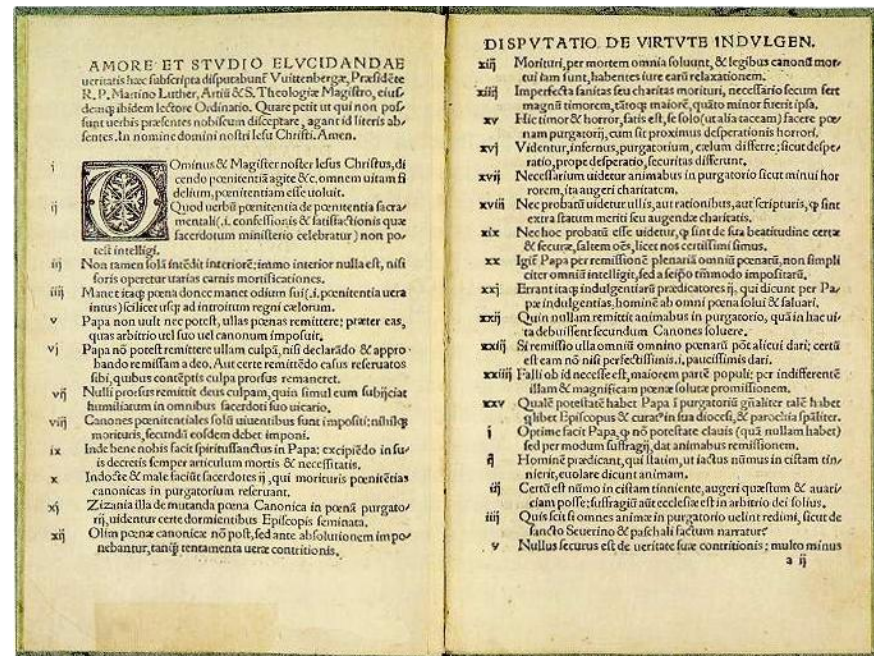 AMORE ET STVDIO ELVCIDANDAE
ueritatis hæc subscripta disputabunt̃ Vuittenbergæ, Præsidẽte
R. P. Martino Luther, Artiũ & S. Theologiæ Magistro, eius/
demq̃ ibidem lectore Ordinario. Quare petit ut qui non pos/
sunt uerbis præsentes nobiscum disceptare, agant id literis ab/
sentes. In nomine domini nostri Iesu Christi. Amen.
i DOminus & Magister noster Iesus Christus, di
cendo pœnitentiã agite &c. omnem uitam fi
delium, pœnitentiam esse uoluit.
ij Quod uerbũ pœnitentia de pœnitentia sacra/
mentali (.i. confessionis & satisfactionis quæ
sacerdotum ministerio celebratur) non po/
test intelligi.
iij Non tamen solã intẽdit interiorẽ: immo interior nulla est, nisi
foris operetur uarias carnis mortificationes.
iiij Manet itaq̃ pœna donec manet odium sui (.i. pœnitentia uera
intus) scilicet usq̃ ad introitum regni cælorum.
v Papa non uult nec potest, ullas pœnas remittere: præter eas,
quas arbitrio uel suo uel canonum imposuit.
vj Papa nõ potest remittere ullam culpã, nisi declarãdo & appro/
bando remissam a deo. Aut certe remittẽdo casus reseruatos
sibi, quibus contẽptis culpa prorsus remaneret.
vij Nulli prorsus remittit deus culpam, quin simul eum subijciat
humiliatum in omnibus sacerdoti suo uicario.
viij Canones pœnitentiales solũ uiuentibus sunt impositi: nihilq̃
morituris, secundũ eosdem debet imponi.
ix Inde bene nobis facit spiritussanctus in Papa: excipiẽdo in su/
is decretis semper articulum mortis & necessitatis.
x Indocte & male faciũt sacerdotes ij, qui morituris pœnitẽtias
canonicas in purgatorium reseruant.
xj Zizania illa de mutanda pœna Canonica in pœnã purgato/
rij, uidentur certe dormientibus Episcopis seminata.
xij Olim pœnæ canonicæ nõ post, sed ante absolutionem impo/
nebantur, tanq̃ tentamenta ueræ contritionis.
DISPVTATIO DE VIRTVTE INDVLGEN.
xiij Morituri, per mortem omnia soluunt, & legibus canonũ mor/
tui iam sunt, habentes iure earũ relaxationem.
xiiij Imperfecta sanitas seu charitas morituri, necessario secum fert
magnũ timorem, tãtoq̃ maiorẽ, quãto minor fuerit ipsa.
xv Hic timor & horror, satis est, se solo (ut alia taceam) facere pœ/
nam purgatorij, cum sit proximus desperationis horrori.
xvj Videntur, infernus, purgatorium, cælum differre: sicut despe/
ratio, prope desperatio, securitas differunt.
xvij Necessarium uidetur animabus in purgatorio sicut minui hor
rorem, ita augeri charitatem.
xviij Nec probatũ uidetur ullis, aut rationibus, aut scripturis, ꝙ sint
extra statum meriti seu augendæ charitatis.
xix Nec hoc probatũ esse uidetur, ꝙ sint de sua beatitudine certæ
& securæ, saltem oẽs, licet nos certissimi simus.
xx Igit̃ Papa per remissionẽ plenariã omniũ pœnarũ, non simpli
citer omniũ intelligit, sed a seipso tm̃modo impositarũ.
xxj Errant itaq̃ indulgentiarũ prædicatores ij, qui dicunt per Pa/
pæ indulgentias, hominẽ ab omni pœna solui & saluari.
xxij Quin nullam remittit animabus in purgatorio, quã in hac ui/
ta debuissent secundum Canones soluere.
xxiij Si remissio ulla omniũ omnino pœnarũ põt alicui dari; certũ
est eam nõ nisi perfectissimis .i. paucissimis dari.
xxiiij Falli ob id necesse est, maiorem partẽ populi: per indifferentẽ
illam & magnificam pœnæ solutæ promissionem.
xxv Qualẽ potestatẽ habet Papa ĩ purgatoriũ gñaliter talẽ habet
q̃libet Episcopus & curat9 in sua diocesi, & parochia spãliter.
i Optime facit Papa, ꝙ nõ potestate clauis (quã nullam habet)
sed per modum suffragij, dat animabus remissionem.
ij Hominẽ prædicant, qui statim, ut iactus nũmus in cistam tin/
nierit, euolare dicunt animam.
iij Certũ est nũmo in cistam tinniente, augeri quæstum & auari/
ciam posse; suffragiũ aũt ecclesiæ est in arbitrio dei solius.
iiij Quis scit si omnes animæ in purgatorio uelint redimi, sicut de
sancto Seuerino & paschali factum narratur?
v Nullus securus est de ueritate suæ contritionis; multo minus
a ij